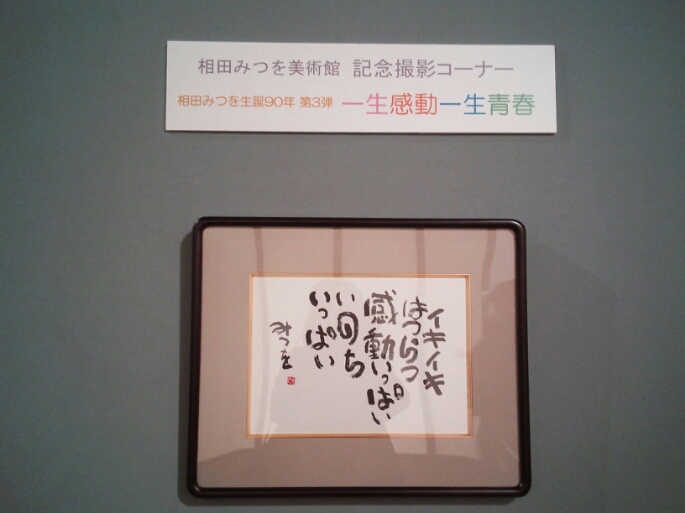 相田みつを美術館 記念撮影コーナー
相田みつを生誕90年 第3弾 一生感動一生青春
イキイキ
はつらつ
感動いっぱい
いのち
いっぱい
みつを